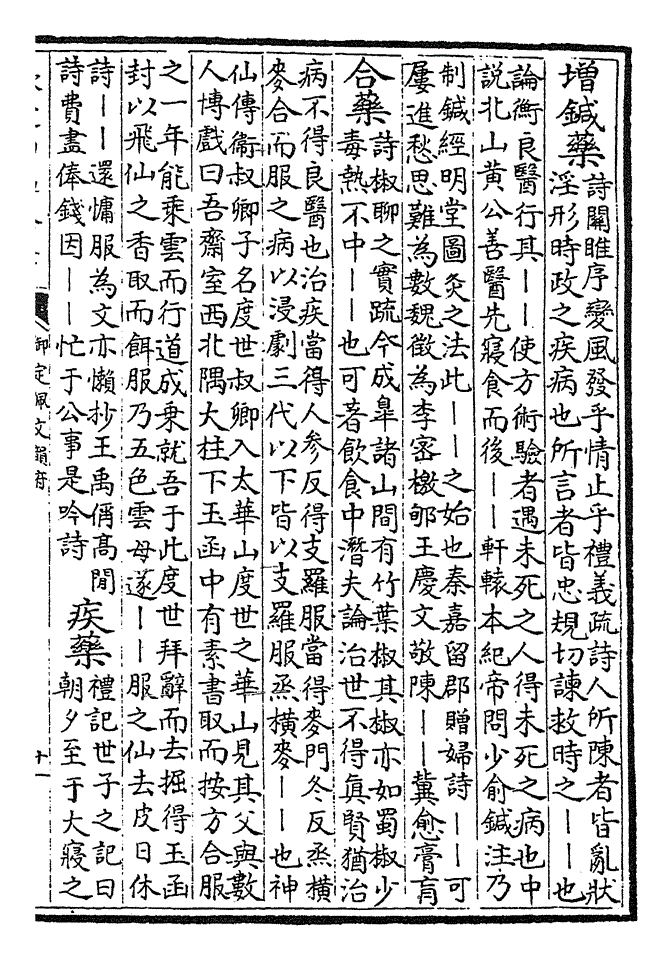 增鍼藥詩關雎序變風發乎情止乎禮義疏詩人所陳者皆亂狀
淫形時政之疾病也所言者皆忠規切諫救時之——也
論衡良醫行其——使方術驗者遇未死之人得未死之病也中
説北山黃公善醫先寢食而後——軒轅本紀帝問少俞鍼注乃
制鍼經明堂圖灸之法此——之始也秦嘉留郡贈婦詩——可
屢進愁思難為數魏徵為李密檄郇王慶文敬陳——冀愈膏肓
合藥詩椒聊之實疏今成臯諸山間有竹葉椒其椒亦如蜀椒少
毒熱不中——也可著飲食中潛夫論治世不得眞賢猶治
病不得良醫也治疾當得人參反得支羅服當得麥門冬反烝橫
麥合而服之病以浸劇三代以下皆以支羅服烝橫麥——也神
仙傳衞叔卿子名度世叔卿入太華山度世之華山見其父與數
人博戲曰吾齋室西北隅大柱下玉函中有素書取而按方合服
之一年能乘雲而行道成乗就吾于此度世拜辭而去掘得玉函
封以飛仙之香取而餌服乃五色雲母遂——服之仙去皮日休
詩——還慵服為文亦懶抄王禹偁高閒
詩費盡俸錢因——忙于公事是吟詩
疾藥禮記世子之記曰
朝夕至于大寢之
御定佩文韻府
十一